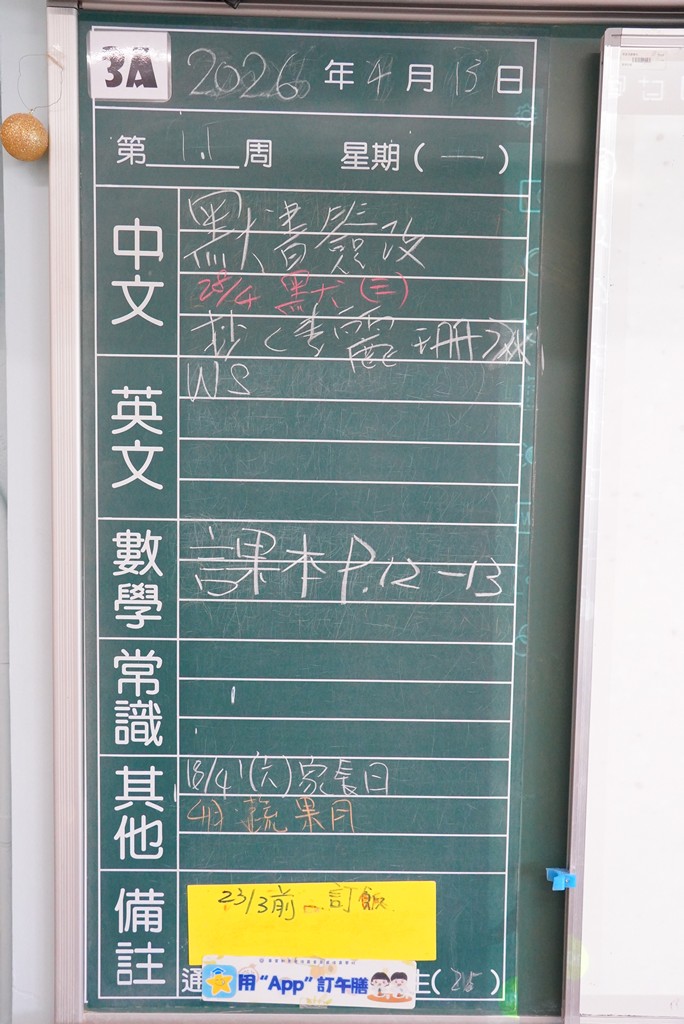 3A 2026 年 4 月 13 日
第 11 周 星期 ( 一 )
中文
默書簽改
28/4 默 (三)
抄
冊
英文
WS
數學
課本 P.12-13
常識
其他
18/4 (六) 家長日
4月 蔬果月
備註
23/3前 訂飯
用 “App” 訂午膳
通
生( )